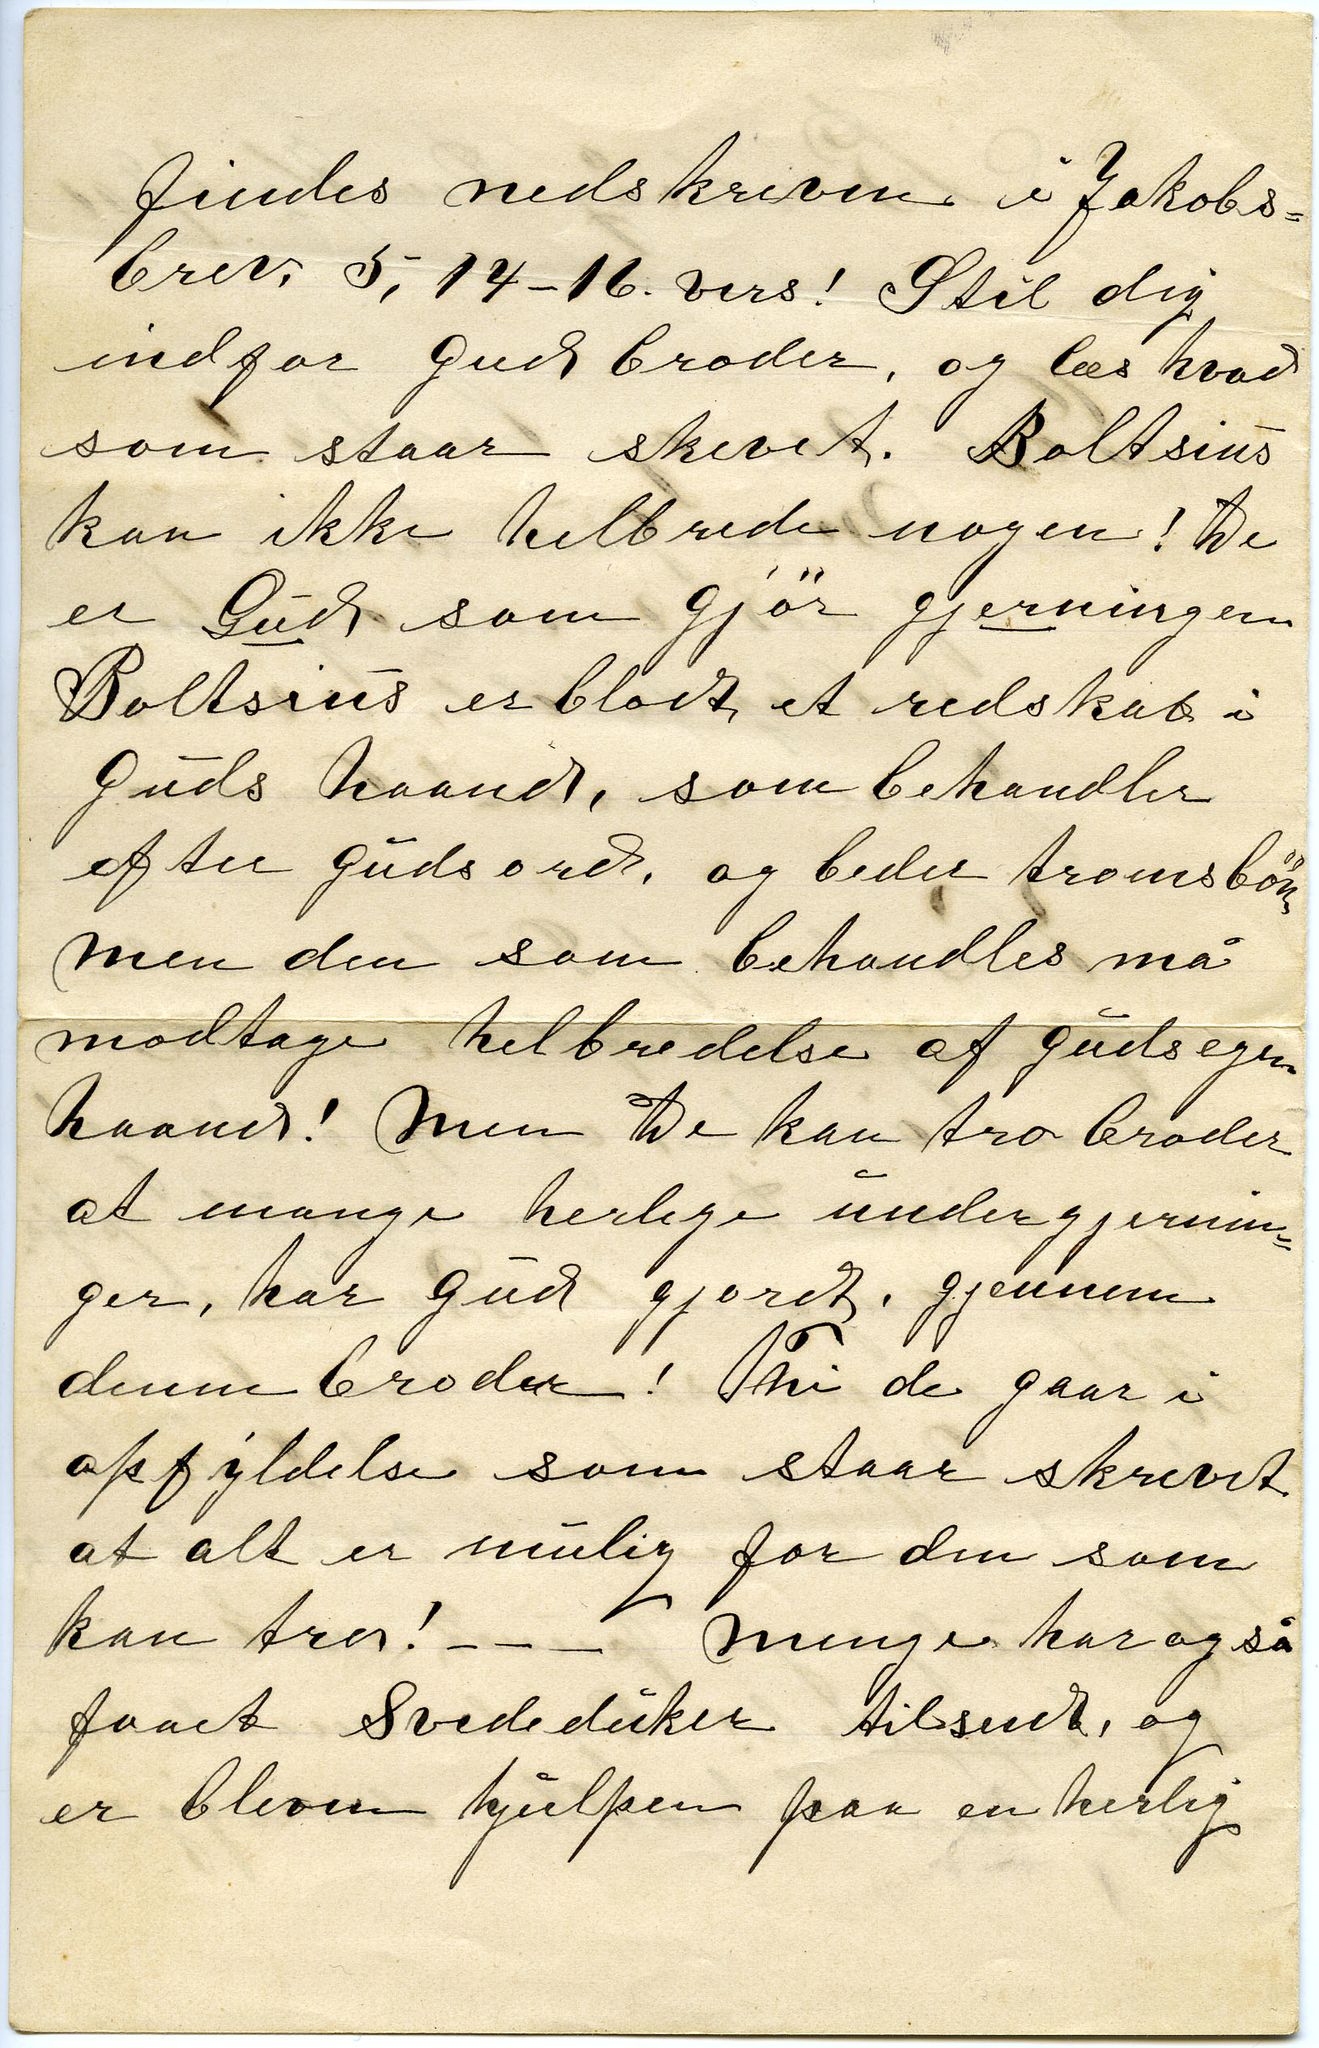 findes nedskreven i Jakobs=
brev, 5, 14-16. vers! Stil dig
indfor Gud broder, og læs hvad
som staar skevet. Boltsius
kan ikke helbrede nogen! De
er Gud som gjör gjerningen
Boltsius er blodt et redskab i
Guds haand, som behandler
efter Guds ord, og beder troensbön,
men den som behandles må
modtage helbredelse af Guds egen
haand! Men De kan tro broder
at mange herlige undergjernin=
ger, har Gud gjordt, gjennem
denne broder! Thi de gaar i
opfyldelse som staar skrevet
at alt er mulig for den som
kan tro! - - - Menge har også
faaet Svededuker tilsendt, og
er bleven hjulpen paa en herlig